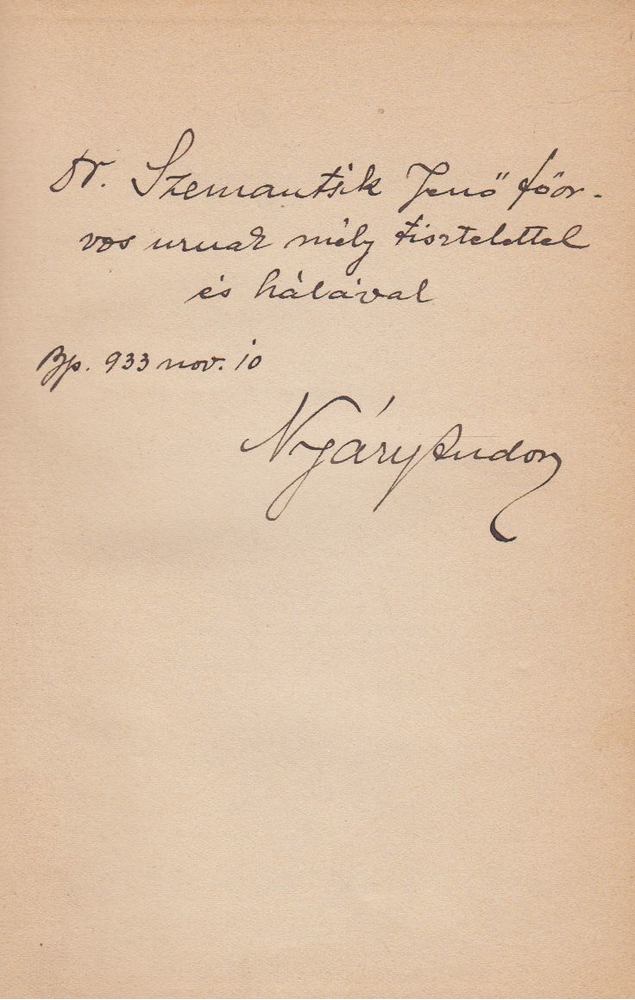 Dr. Szemantsik Jenő főor-
vos urnak mély tisztelettel
és hálával
Bp. 933 nov. 10
Nyáry Andor